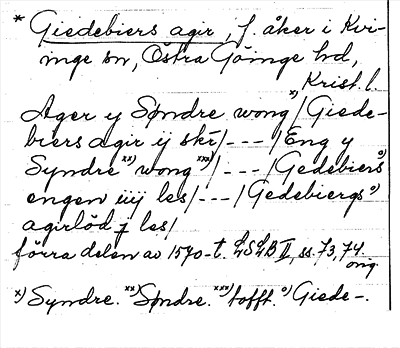 * Giedebiers agir, f. åker i Kvi-
inge sn, Östra Göinge hd,
Krist. l.
Ager y Søndre wong x)/Giede-
biers agir ÿ skr/---/Eng y
Syndre xx) wong xxx)/---/Gedebiers o)
engen iiij les/---/Gedebiergs o)
agirlöd j les/
förra delen av 1570-t. LSLB II, ss. 73, 74
orig.
x) Syndre. xx) Søndre. xxx) tofft. o) Giede-.